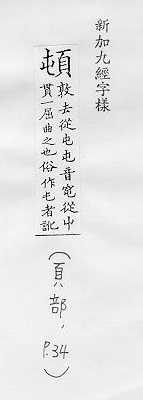 新加九經字樣
頓
敦去從屯屯音窀從屮
貫一屈曲之也俗作乇者訛
（頁部，P.34）